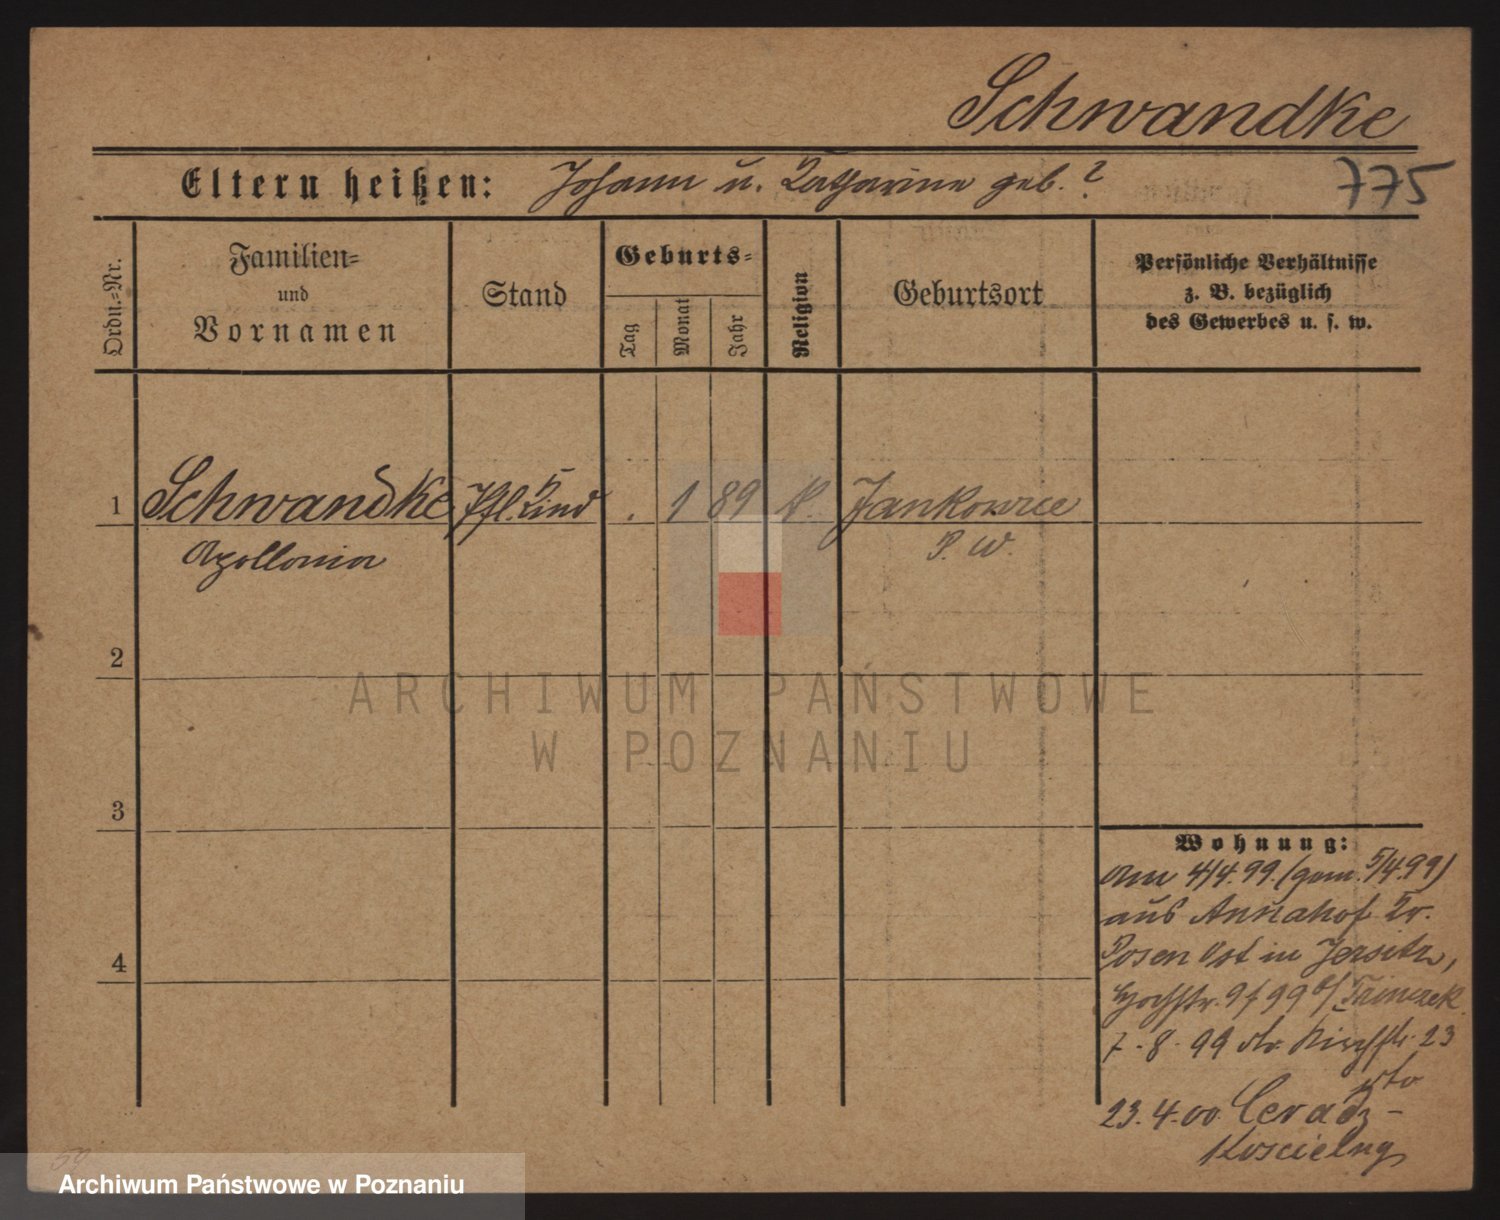 Schwandke
Eltern heißen: Johann u. Katharina geb. ?
775
Ordn.=Nr.
Familien=
und
Vornamen
Stand
Geburts=
Tag
Monat
Jahr
Religion
Geburtsort
Persönliche Verhältnisse
z. B. bezüglich
des Gewerbes u. s. w.
1 Schwandke Pfl. Kind . 1 89 k. Jankowice
Apollonia P. W.
2
3
4
Wohnung:
Am 4/4. 99. (gem. 5/4.99)
aus Annahof Kr.
Posen Ost in Jersitz,
Hochstr. 9 f 99 b/
7. 8. 99 do Kirchstr. 23
dto
23. 4. 00 Ceradz-
Koscielny
59
ARCHIWUM PAŃSTWOWE
W POZNANIU
Archiwum Państwowe w Poznaniu